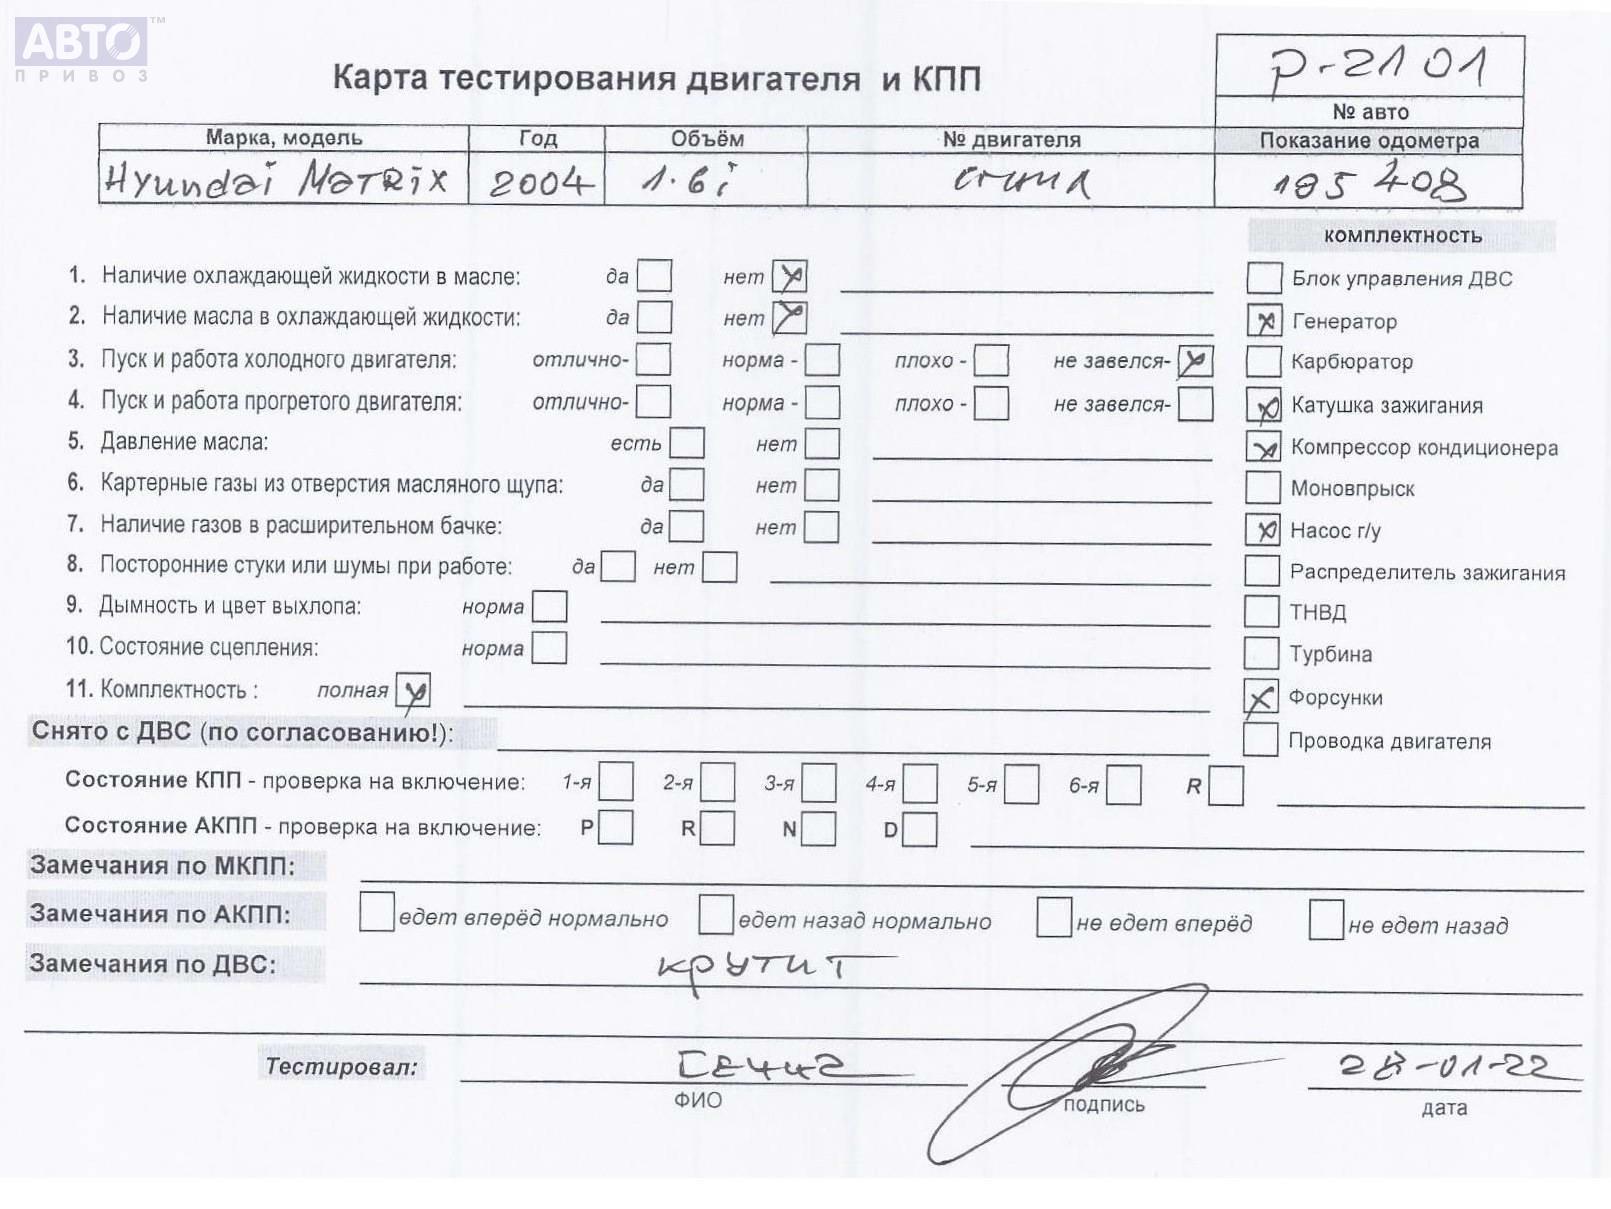 АВТО™
ПРИВОЗ
Карта тестирования двигателя и КПП
р-2101
№ авто
Марка, модель Год Объём № двигателя Показание одометра
Hyundai Matrix 2004 1.6i сгнил 195 408
комплектность
1. Наличие охлаждающей жидкости в масле: да нет
Блок управления ДВС
2. Наличие масла в охлаждающей жидкости: да нет
Генератор
3. Пуск и работа холодного двигателя: отлично- норма - плохо - не завелся-
Карбюратор
4. Пуск и работа прогретого двигателя: отлично- норма - плохо - не завелся-
Катушка зажигания
5. Давление масла: есть нет
Компрессор кондиционера
6. Картерные газы из отверстия масляного щупа: да нет
Моновпрыск
7. Наличие газов в расширительном бачке: да нет
Насос г/у
8. Посторонние стуки или шумы при работе: да нет
Распределитель зажигания
9. Дымность и цвет выхлопа: норма
ТНВД
10. Состояние сцепления: норма
Турбина
11. Комплектность : полная
Форсунки
Снято с ДВС (по согласованию!):
Проводка двигателя
Состояние КПП - проверка на включение: 1-я 2-я 3-я 4-я 5-я 6-я R
Состояние АКПП - проверка на включение: P R N D
Замечания по МКПП:
Замечания по АКПП: едет вперёд нормально едет назад нормально не едет вперёд не едет назад
Замечания по ДВС: крутит
Тестировал: 28-01-22
ФИО подпись дата